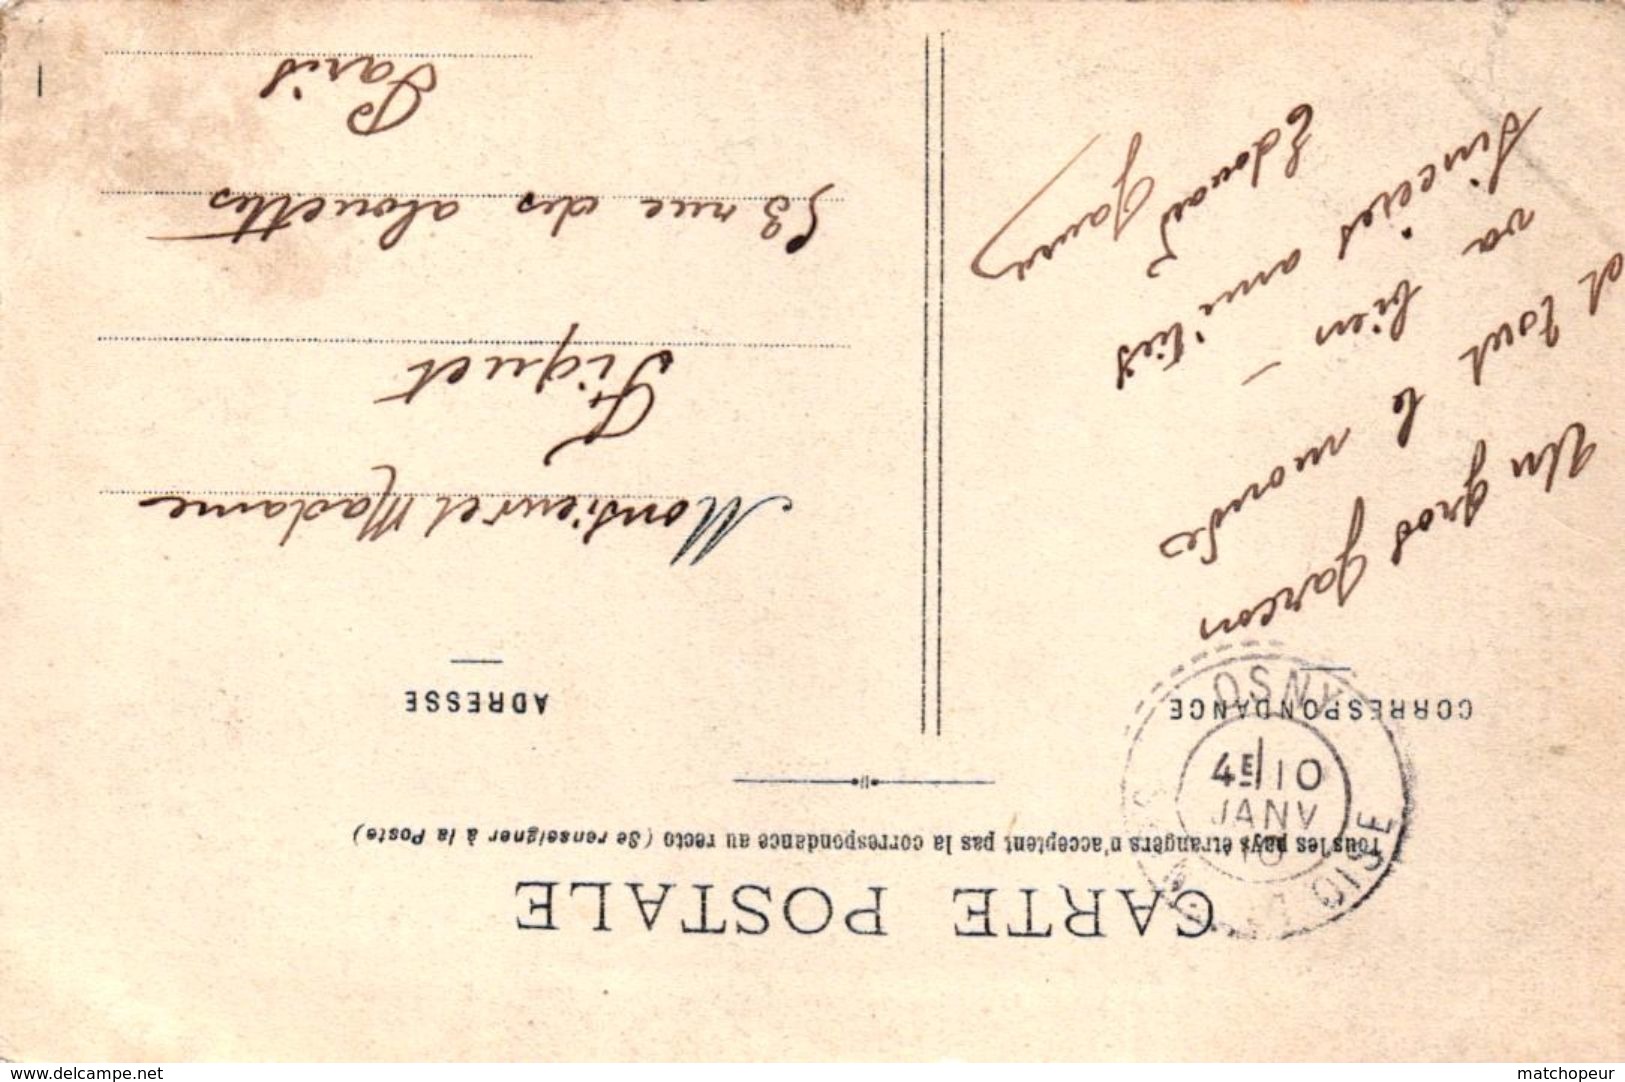 CARTE POSTALE
Tous les pays étrangers n'acceptent pas la correspondance au recto (Se renseigner à la Poste)
CORRESPONDANCE
ADRESSE
OSNY
4E 10
JANV
10
OISE
Un gros garçon
et tout le monde
va bien -
Sincères amitiés
Edouard
Monsieur et Madame
Fiquet
53 rue des alouettes
Paris
www.delcampe.net
matchopeur